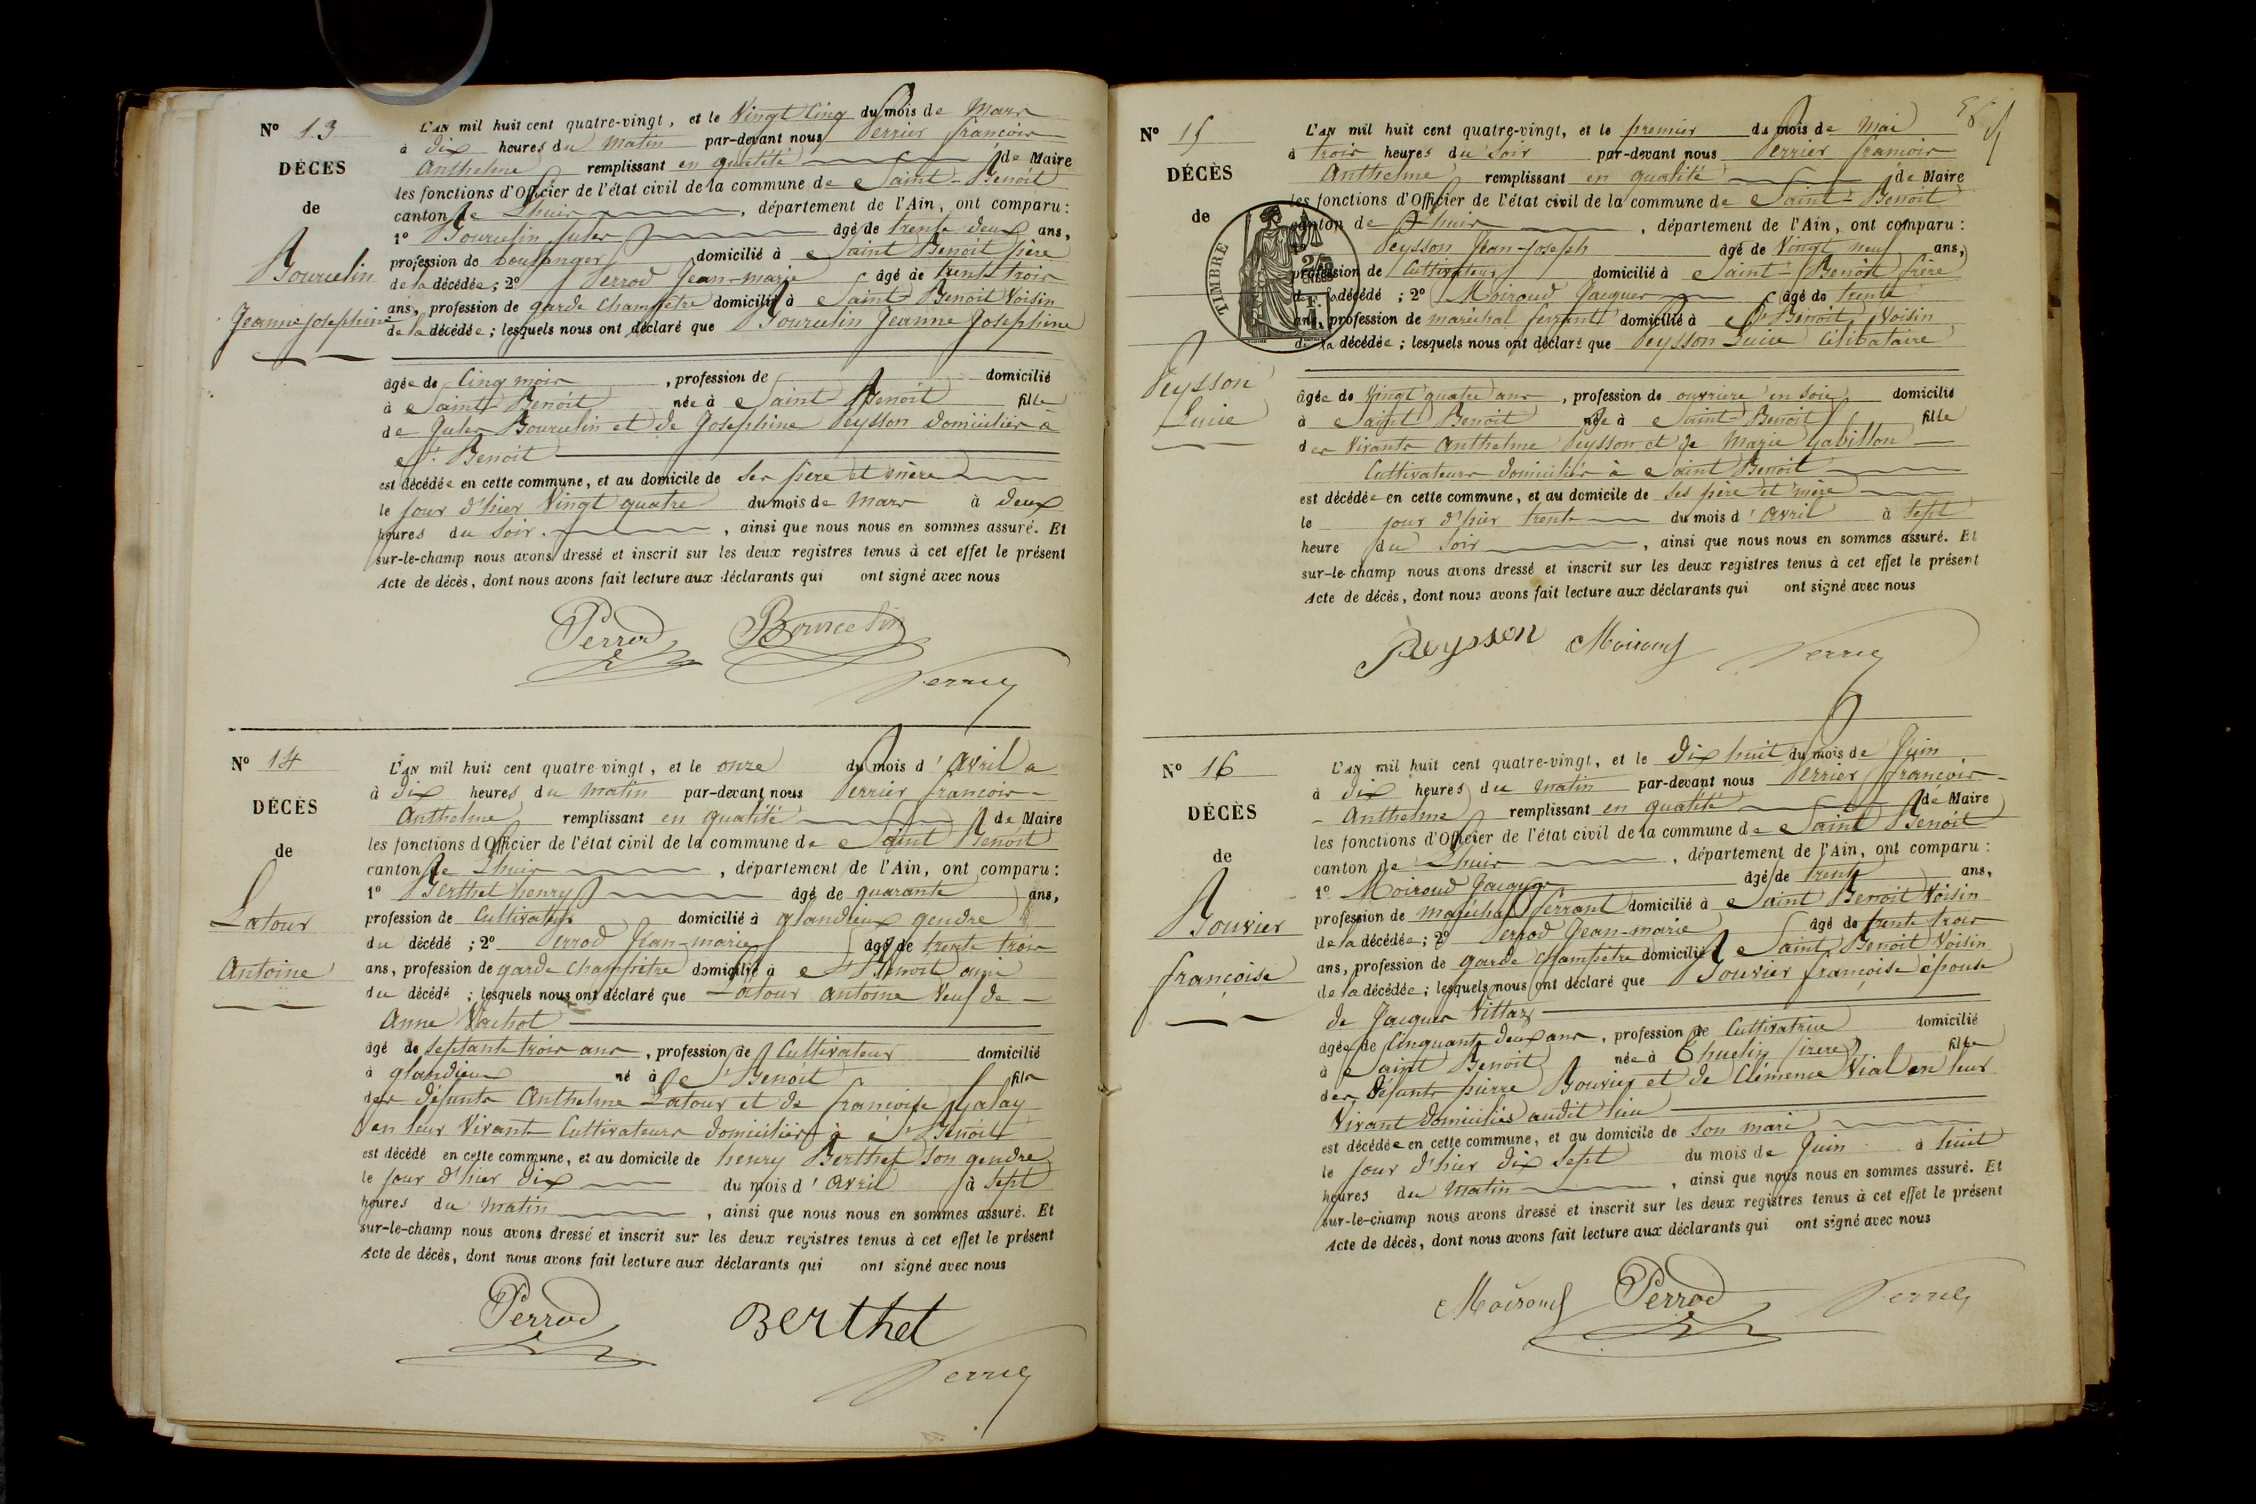 Nº 13
DÉCÈS
de
Bourcelin
Jeanne Josephine
L'AN mil huit cent quatre-vingt, et le Vingt Cinq du mois de Mars
à dix heures du Matin par-devant nous Perrier françois
Anthelme remplissant en qualité de Maire
les fonctions d'Officier de l'état civil de la commune de Saint-Benoit
canton de Lhuis, département de l'Ain, ont comparu :
1º Bourcelin Jules âgé de trente deux ans,
profession de boulanger domicilié à Saint Benoit père
de la décédée ; 2º Perrod Jean-marie âgé de trente trois
ans, profession de garde champêtre domicilié à Saint-Benoit Voisin
de la décédée ; lesquels nous ont déclaré que Bourcelin Jeanne Josephine
âgée de Cinq mois, profession de domicilié
à Saint-Benoit née à Saint Benoit fille
de Jules Bourcelin et de Josephine Peysson domiciliés à
St. Benoit
est décédée en cette commune, et au domicile de ses père et mère
le jour d'hier Vingt quatre du mois de Mars à deux
heures du soir, ainsi que nous nous en sommes assuré. Et
sur-le-champ nous avons dressé et inscrit sur les deux registres tenus à cet effet le présent
Acte de décès, dont nous avons fait lecture aux déclarants qui ont signé avec nous
Perrod Bourcelin
Perrier
Nº 14
DÉCÈS
de
Latour
Antoine
L'AN mil huit cent quatre-vingt, et le onze du mois d'Avril a
à dix heures du Matin par-devant nous Perrier françois
Anthelme remplissant en qualité de Maire
les fonctions d'Officier de l'état civil de la commune de Saint Benoit
canton de Lhuis, département de l'Ain, ont comparu :
1º Berthet henry âgé de quarante ans,
profession de Cultivateur domicilié à glandieux gendre
du décédé ; 2º Perrod Jean-marie âgé de trente trois
ans, profession de garde champêtre domicilié à St Benoit ami
du décédé ; lesquels nous ont déclaré que Latour antoine Veuf de
Anne Vachot
âgé de septante trois ans, profession de Cultivateur domicilié
à glandieux né à St Benoit fils
des défunts Anthelme Latour et de françoise Galay
en leur Vivant Cultivateurs domiciliés à St Benoit
est décédé en cette commune, et au domicile de henry Berthet son gendre
le jour d'hier dix du mois d'avril à sept
heures du Matin, ainsi que nous nous en sommes assuré. Et
sur-le-champ nous avons dressé et inscrit sur les deux registres tenus à cet effet le présent
Acte de décès, dont nous avons fait lecture aux déclarants qui ont signé avec nous
Perrod Berthet
Perrier
Nº 15
DÉCÈS
de
Peysson
Lucie
TIMBRE
L'AN mil huit cent quatre-vingt, et le premier du mois de Mai
à trois heures du soir par-devant nous Perrier françois
Anthelme remplissant en qualité de Maire
les fonctions d'Officier de l'état civil de la commune de Saint-Benoit
canton de Lhuis, département de l'Ain, ont comparu :
Peysson Jean-Joseph âgé de Vingt neuf ans,
profession de Cultivateur domicilié à Saint-Benoit frère
de la décédé ; 2º Moiroud Jacques âgé de trente
ans, profession de maréchal ferrant domicilié à St Benoit Voisin
de la décédée ; lesquels nous ont déclaré que Peysson Lucie Célibataire
âgée de Vingt quatre ans, profession de ouvrière en soie domicilié
à Saint Benoit née à Saint-Benoit fille
des Vivants Anthelme Peysson et de Marie Gabillon
Cultivateurs domiciliés à Saint Benoit
est décédée en cette commune, et au domicile de ses père et mère
le jour d'hier trente du mois d'avril à sept
heure du soir, ainsi que nous nous en sommes assuré. Et
sur-le-champ nous avons dressé et inscrit sur les deux registres tenus à cet effet le présent
Acte de décès, dont nous avons fait lecture aux déclarants qui ont signé avec nous
Peysson Moiroud Perrier
Nº 16
DÉCÈS
de
Bouvier
françoise
L'AN mil huit cent quatre-vingt, et le dix huit du mois de Juin
à dix heures du matin par-devant nous Perrier françois
Anthelme remplissant en qualité de Maire
les fonctions d'Officier de l'état civil de la commune de Saint Benoit
canton de Lhuis, département de l'Ain, ont comparu :
1º Moiroud Jacques âgé de trente ans,
profession de maréchal ferrant domicilié à Saint Benoit Voisin
de la décédée ; 2º Perrod Jean-marie âgé de trente trois
ans, profession de garde champêtre domicilié à Saint Benoit Voisin
de la décédée ; lesquels nous ont déclaré que Bouvier françoise épouse
de Jacques Vittaz
âgée de Cinquante deux ans, profession de Cultivatrice domicilié
à Saint Benoit née à Thuelin (isère) fille
des Défunts pierre Bouvier et de Clémence Vial en leur
Vivant domiciliés audit lieu
est décédée en cette commune, et au domicile de son mari
le jour d'hier dix sept du mois de Juin à huit
heures du Matin, ainsi que nous nous en sommes assuré. Et
sur-le-champ nous avons dressé et inscrit sur les deux registres tenus à cet effet le présent
Acte de décès, dont nous avons fait lecture aux déclarants qui ont signé avec nous
Moiroud Perrod Perrier